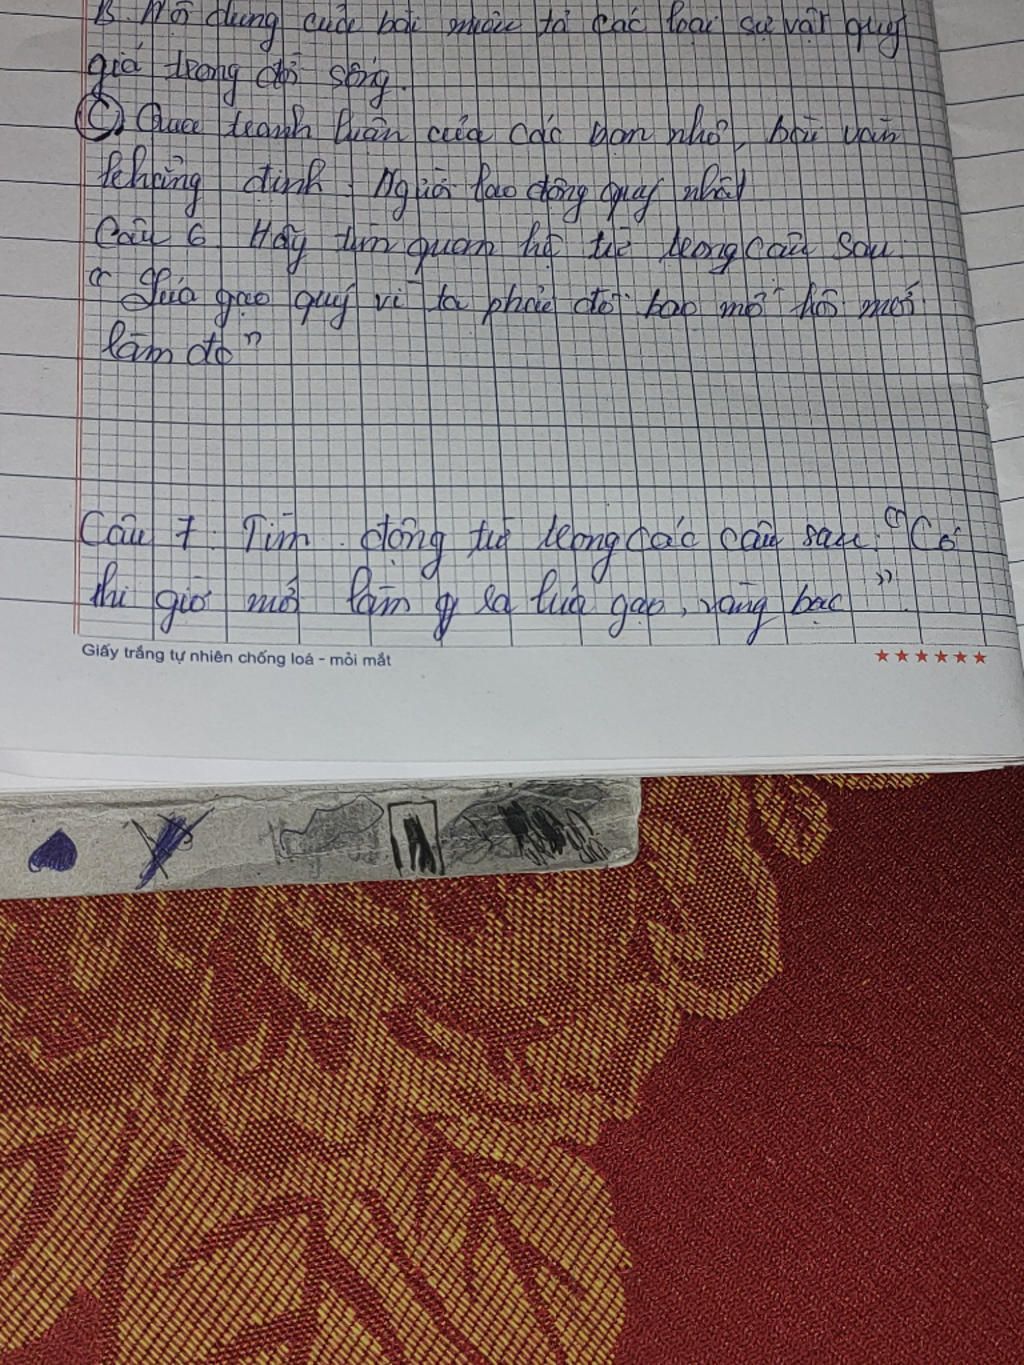 B. Nội dung của bài miêu tả các loại sự vật quý
giá trong đời sống.
C. Qua tranh luận của các bạn nhỏ, bài văn
khẳng định: Người lao động quý nhất
Câu 6. Hãy tìm quan hệ từ trong câu sau:
"Lúa gạo quý vì ta phải đổ bao mồ hôi mới
làm đc"
Câu 7: Tìm động từ trong các câu sau: "Có
thì giờ mới làm ra lúa gạo, vàng bạc"
Giấy trắng tự nhiên chống loá - mỏi mắt